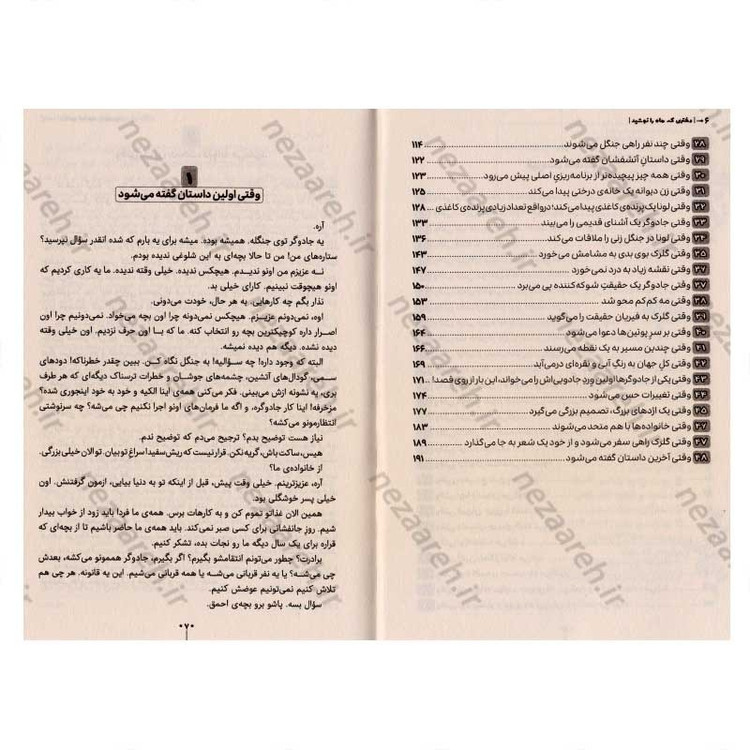 ۶ | دختری که ماه را نوشید |
۲۸ وقتی چند نفر راهی جنگل می‌شوند ۱۱۴
۲۹ وقتی داستانِ آتشفشان گفته می‌شود ۱۲۲
۳۰ وقتی همه چیز پیچیده‌تر از برنامه‌ریزیِ اصلی پیش می‌رود ۱۲۳
۳۱ وقتی زن دیوانه یک خانه‌ی درختی پیدا می‌کند ۱۲۵
۳۲ وقتی لونا یک پرنده‌ی کاغذی پیدا می‌کند؛ در واقع تعداد زیادی پرنده‌ی کاغذی ۱۲۸
۳۳ وقتی جادوگر یک آشنای قدیمی را می‌بیند ۱۳۳
۳۴ وقتی لونا در جنگل زنی را ملاقات می‌کند ۱۳۶
۳۵ وقتی گلرک بوی بدی به مشامش می‌خورد ۱۴۳
۳۶ وقتی نقشه زیاد به درد نمی‌خورد ۱۴۷
۳۷ وقتی جادوگر یک حقیقتِ شوکه‌کننده پی می‌برد ۱۵۰
۳۸ وقتی مه کم‌کم محو شد ۱۵۳
۳۹ وقتی گلرک به فیریان حقیقت را می‌گوید ۱۵۹
۴۰ وقتی بر سرِ پوتین‌ها دعوا می‌شود ۱۶۴
۴۱ وقتی چندین مسیر به یک نقطه می‌رسند ۱۶۶
۴۲ وقتی کل جهان به رنگ آبی و نقره‌ای درمی‌آید ۱۶۹
۴۳ وقتی یکی از جادوگرها اولین وردِ جادویی‌اش را می‌خواند، این بار از روی قصد! ۱۷۱
۴۴ وقتی تغییرات حس می‌شود ۱۷۴
۴۵ وقتی یک اژدهای بزرگ، تصمیم بزرگی می‌گیرد ۱۷۷
۴۶ وقتی خانواده‌ها با هم متحد می‌شوند ۱۸۳
۴۷ وقتی گلرک راهی سفر می‌شود و از خود یک شعر به جا می‌گذارد ۱۸۹
۴۸ وقتی آخرین داستان گفته می‌شود ۱۹۱
۱
وقتی اولین داستان گفته می‌شود
آره.
یه جادوگر توی جنگله. همیشه بوده. میشه برای یه بارم که شده انقدر سؤال نپرسید؟
ستاره‌های من! من تا حالا بچه‌ای به این شلوغی ندیده بودم.
نـه عزیزم من اونو ندیـدم. هیچکس ندیده. خیلی وقته ندیده. ما یه کاری کردیم که
اونو هیچوقت نبینیم. کارای خیلی بد.
نذار بگم چه کارهایی. به هر حال، خودت می‌دونی.
اوه، نمی‌دونم عزیزم. هیچکس نمی‌دونه چرا اون بچه می‌خواد. نمی‌دونیم چرا اون
اصـرار داره کوچیکترین بچه رو انتخاب کنه. ما که بـا اون حرف نزدیم. اون خیلی وقته
دیده نشده. دیگه هم دیده نمیشه.
البته که وجود داره! چه سـؤالیه! به جنگل نگاه کـن. ببین چقدر خطرناکه! دودهای
سـمی، گودال‌های آتشین، چشمه‌های جوشان و خطرات ترسناک دیگه‌ای که هر طرف
بری، یه نشونه ازش می‌بینی. فکر می‌کنی همه‌ی اینا الکیه و خود به خود اینجوری شده؟
مزخرفه! اینا کار جادوگره، و اگه ما فرمان‌های اونو اجرا نکنیم چی می‌شه؟ چه سرنوشتی
انتظارمونو می‌کشه؟
نیاز هست توضیح بدم؟ ترجیح می‌دم که توضیح ندم.
هیس، ساکت باش، گریه نکن. قرار نیست که ریش سفیدا سراغ تو بیان. تو الان خیلی بزرگی.
از خانواده‌ی ما؟
آره، عزیزترینم. خیلی وقت پیش، قبل از اینکه تو به دنیا بیایی، ازمون گرفتنش. اون
خیلی پسر خوشگلی بود.
همین الان غذاتو تموم کن و به کارهات برس. همه‌ی ما فردا باید زود از خواب بیدار
شیم. روزِ جانفشانی برای کسی صبر نمی‌کند. باید همه‌ی ما حاضر باشیم تا از بچه‌ای که
قراره برای یک سال دیگه ما رو نجات بده، تشکر کنیم.
برادرت؟ چطور می‌تونم انتقامشو بگیرم؟ اگر بگیرم، جادوگر هممونو می‌کشه، بعدش
چی می‌شـه؟ یا یه نفر قربانی می‌شـه یا همه قربانی می‌شیم. این یه قانونه. هر چی هم
تلاش کنیم نمی‌تونیم عوضش کنیم.
سؤال بسه. پاشو برو بچه‌ی احمق.
۰۷۰
nezaareh.ir